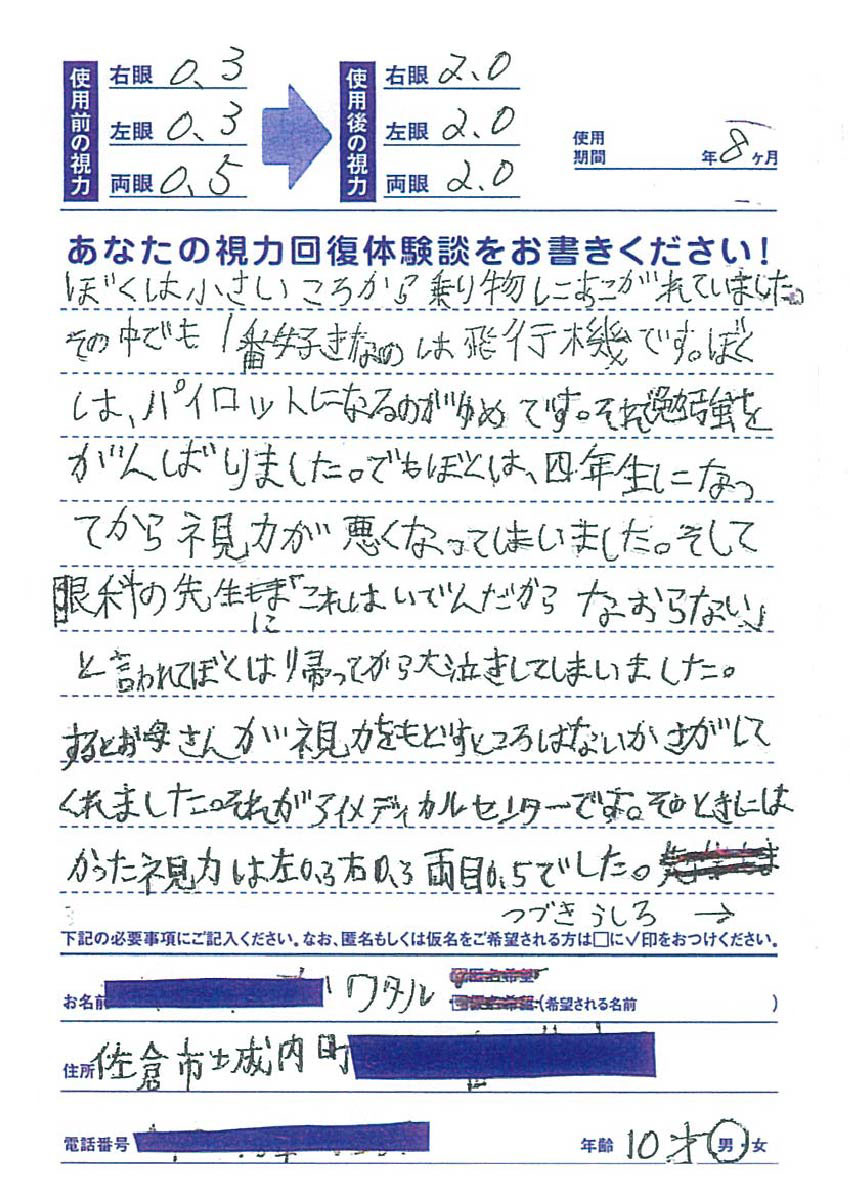 使用前の視力
右眼 0.3
左眼 0.3
両眼 0.5
使用後の視力
右眼 2.0
左眼 2.0
両眼 2.0
使用期間 年 8 ヶ月
あなたの視力回復体験談をお書きください!
ぼくは小さいころから乗り物にあこがれていました。
その中でも1番好きなのは飛行機です。ぼく
は、パイロットになるのがゆめです。それで勉強を
がんばりました。でもぼくは、四年生になっ
てから視力が悪くなってしまいました。そして
眼科の先生に「これはいでんだからなおらない」
と言われてぼくは帰ってから大泣きしてしまいました。
するとお母さんが視力をもどすところはないかさがして
くれました。それがアイメディカルセンターです。そのときには
かった視力は左0.3右0.3両目0.5でした。
つづきうしろ →
下記の必要事項にご記入ください。なお、匿名もしくは仮名をご希望される方は□に✓印をおつけください。
お名前 ワタル
(希望される名前 )
住所 佐倉市城内町
電話番号 年齢 10才 男・女